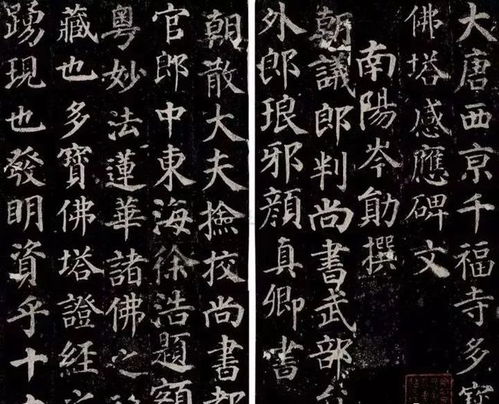 大唐西京千福寺多寶
佛塔感應碑文
南陽岑勛撰
朝議郎判尚書武部
外郎琅邪顏真卿書
朝散大夫撿挍尚書都
官郎中東海徐浩題額
粵妙法蓮華諸佛之
藏也多寶佛塔證經之
踴現也發明資乎十